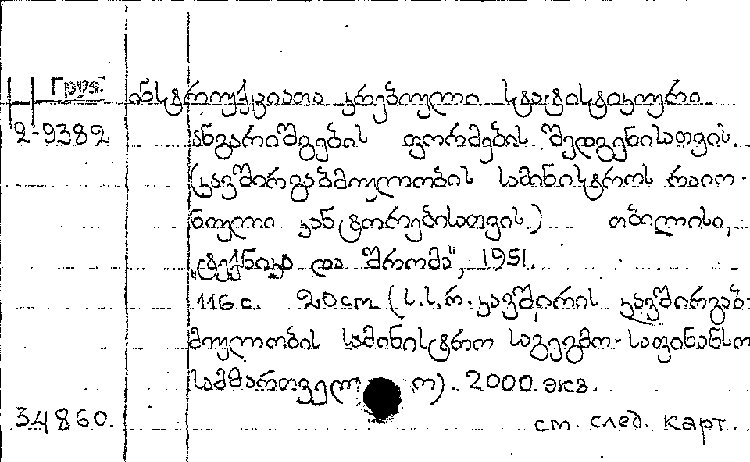 Груз. ინსტრუქციათა კრებული სტატისტიკური
2-9382 ანგარიშგების ფორმების შედგენისათვის.
(კავშირგაბმულობის სამინისტროს რაიო-
ნული კანტორებისათვის.) თბილისი,
„ტექნიკა და შრომა“, 1951.
116 с. 20 cm. (ს.ს.რ. კავშირის კავშირგაბ-
მულობის სამინისტრო საგეგმო-საფინანსო
სამმართველო). 2000 экз.
34860. см. след. карт.